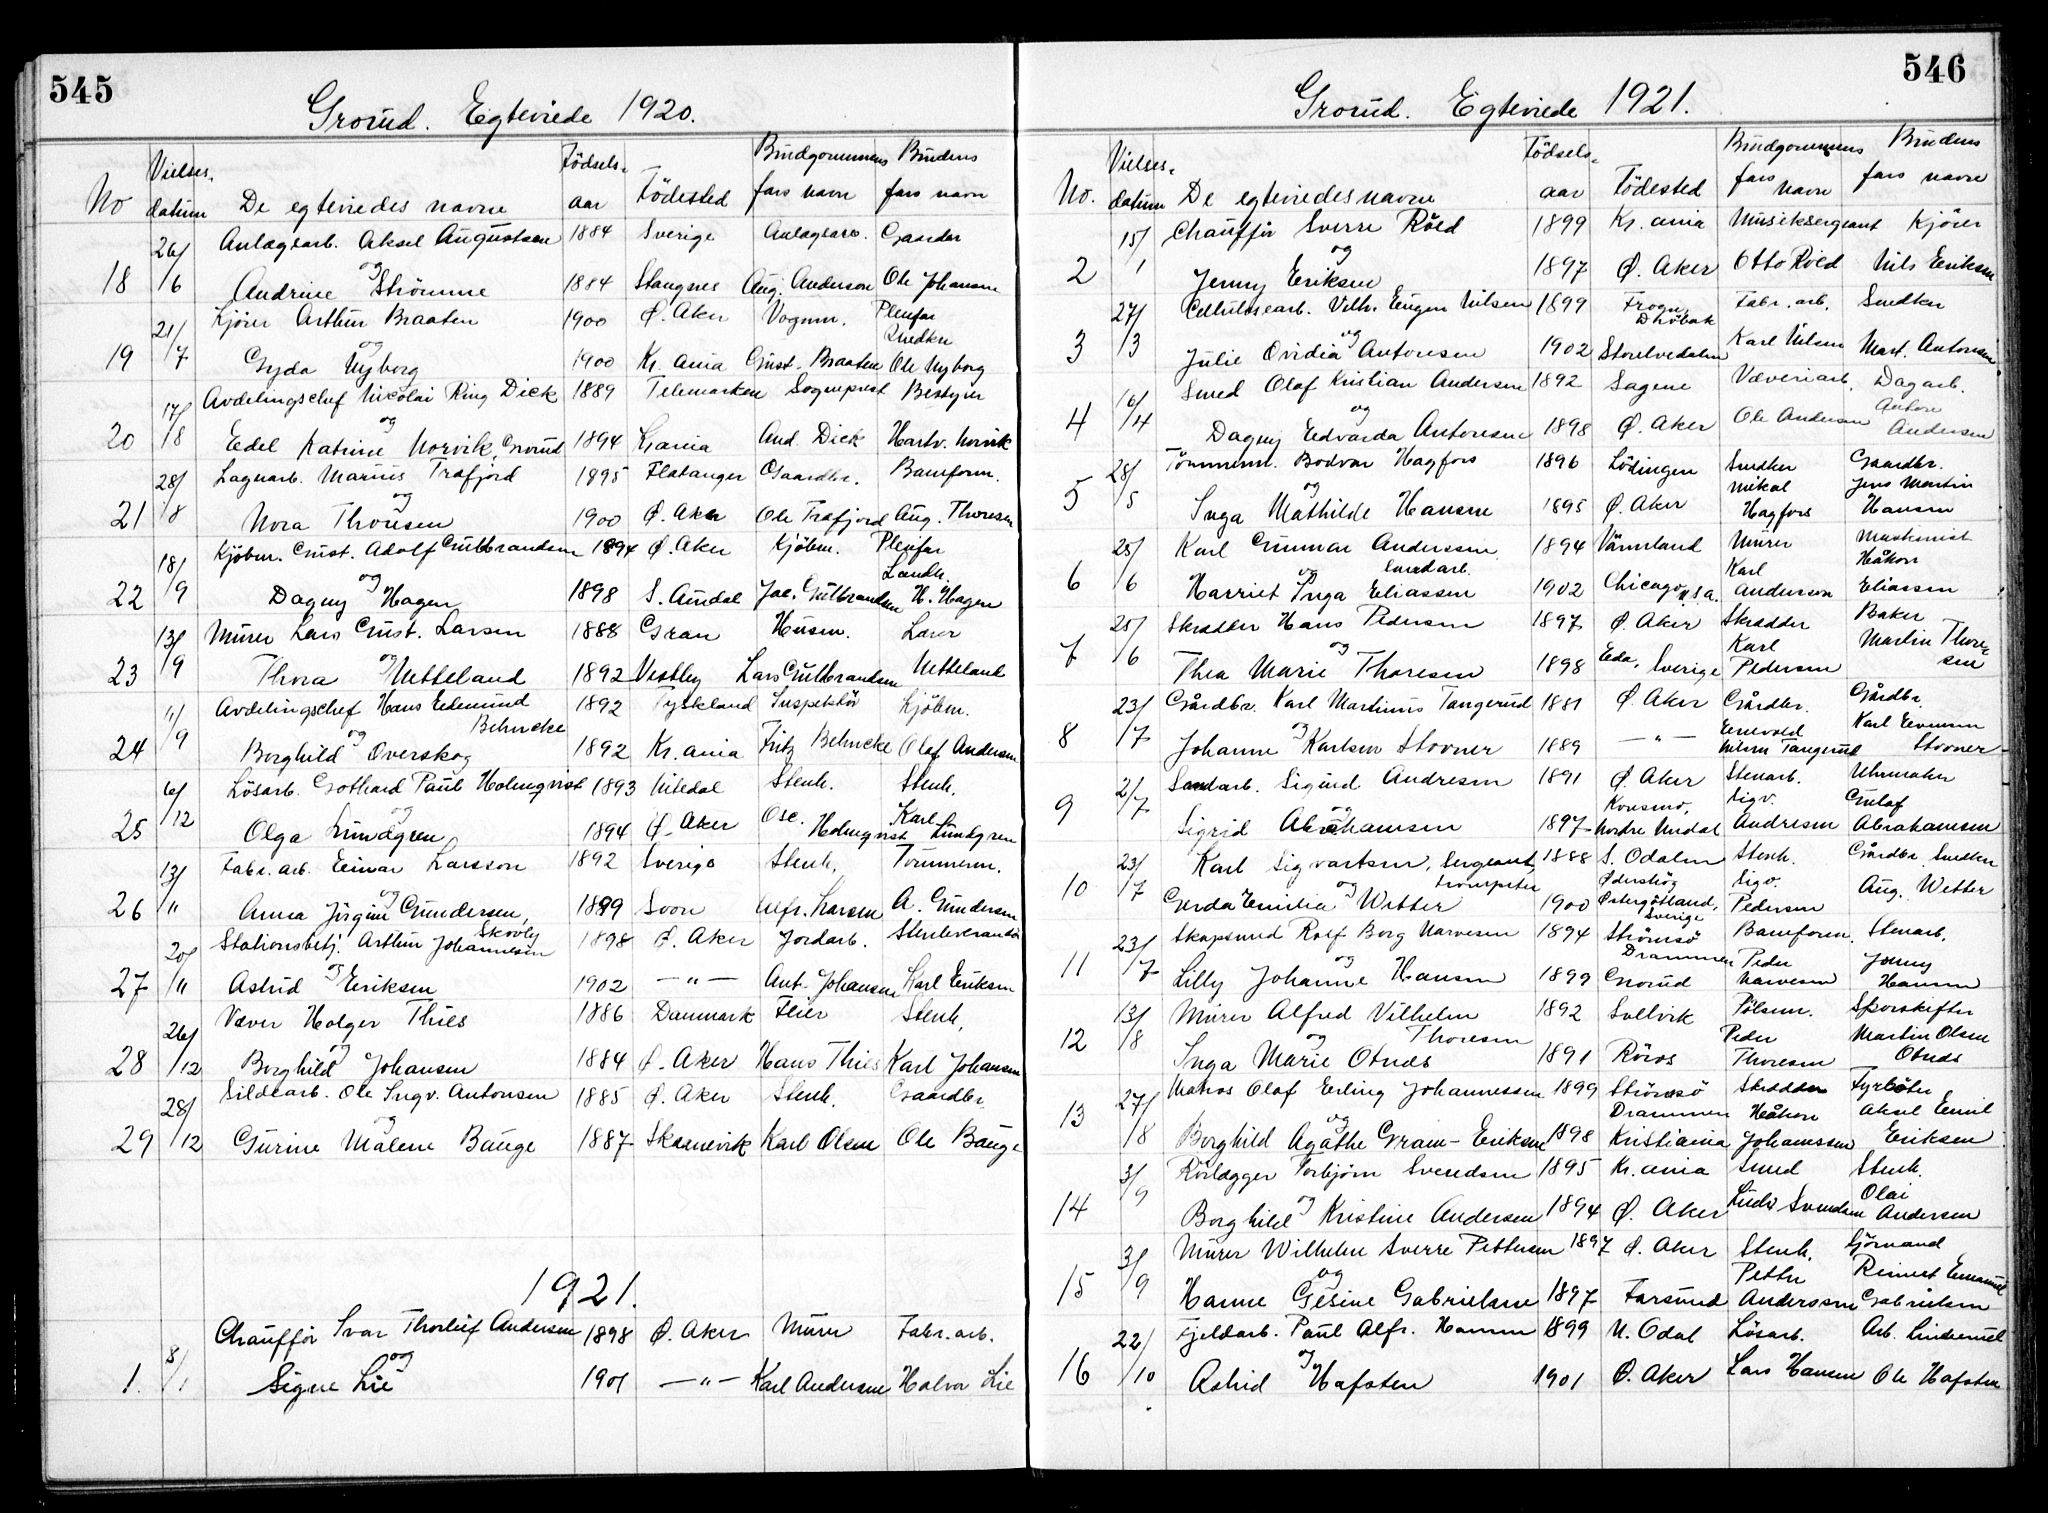 545
Grorud. Egteviede 1920.
No
Vielses-
datum
De egteviedes navne
Födsels-
aar
Födested
Brudgommens
fars navn
Brudens
fars navn
26/ Anlægsarb. Aksel Augustsen 1884 Sverige Anlægsarb. Gaardbr
18 /6 og
Andrine Strömme 1884 Stangnes Aug. Anderson Ole Johansen
21/ Kjörer Arthur Braaten 1900 Ø. Aker Vognm. Pleifar
Snedker
19 /7 og
Gyda Nyborg 1900 Kr.ania Gust. Braaten Ole Nyborg
17/ Avdelingschef Nicolai Ring Dick 1889 Telemarken Sogneprest Bestyrer
20 /8 og
Edel Katrine Norvik, Grorud 1894 Kr.ania And. Dick Hartv. Norvik
28/ Lagerarb. Marius Trafjord 1895 Flatanger Gaardbr. Baneform.
21 /8 og
Nora Thoresen 1900 Ø. Aker Ole Trafjord Aug. Thoresen
18/ Kjöbm. Gust. Adolf Gulbrandsen 1894 Ø. Aker Kjöbm. Pleifar
Landh.
22 /9 og
Dagny Hagen 1898 S. Aurdal Jac. Gulbrandsen H. Hagen
13/ Murer Lars Gust. Larsen 1888 Gran Husm. Lærer
23 /9 og
Thora Netteland 1892 Vestby Lars Gulbrandsen Netteland
11/ Avdelingschef Hans Edmund
Behncke 1892 Tyskland Inspektör Kjöbm.
24 /9 og
Borghild Overskog 1892 Kr.ania Fritz Behncke Olaf Andersen
6/ Lösarb. Gothard Paul Holmqvist 1893 Nitedal Stenh. Stenh.
25 /12 og
Olga Lundgren 1894 Ø. Aker Osc. Holmqvist Karl Lundgren
13/ Fabr. arb. Einar Larsson 1892 Sverige Stenh. Tömmerm.
26 " og
Anna Jörgine Gundersen, 1899 Soon Alfr. Larsen A. Gundersen
20/ Stationsbetj. Arthur Johannesen
Skovly 1898 Ø. Aker Jordarb. Stenleverandör
27 /11 og
Astrid Eriksen 1902 — " — Ant. Johansen Karl Eriksen
26/ Væver Holger Thies 1886 Danmark Feier Stenh.
28 /12 og
Borghild Johansen 1884 Ø. Aker Hans Thies Karl Johansen
28/ Sildearb. Ole Ingv. Antonsen 1885 Ø. Aker Stenh. Gaardbr.
29 /12 og
Gurine Malene Bauge 1887 Skaanevik Karl Olsen Ole Bauge
1921.
8/ Chaufför Ivar Thorleif Andersen 1898 Ø. Aker Murer Fabr. arb.
1. /1 og
Signe Lie 1901 — " — Karl Andersen Halvor Lie
546
Grorud. Egteviede 1921.
No.
Vielses-
datum
De egteviedes navne
Födsels-
aar
Födested
Brudgommens
fars
navn
Brudens
fars navn
15/ Chauffør Sverre Röed 1899 Kr.ania Musiksergeant Kjörer
2 /1 og
Jenny Eriksen 1897 Ø. Aker Otto Röed Nils Eriksen
27/ Cellulosearb. Vilh. Eugen Nilsen 1899 Frogn,
Dröbak Fabr. arb. Snedker
3 /3 og
Julie Ovidia Antonsen 1902 Storelvedalen Karl Nilsen Mart. Antonsen
16/ Smed Olaf Kristian Andersen 1892 Sagene Væveriarb. Dagarb.
4 /4 og
Dagny Edvarda Antonsen 1898 Ø. Aker Ole Andersen Antone
Andersen
28/ Tömmerm. Bodvar Hagfors 1896 Lödingen Snedker Gaardbr.
5 /5 og
Inga Mathilde Hansen 1895 Ø. Aker Mikal
Hagfors Jens Martin
Hansen
25/ Karl Gunnar Anderssen
Smedarb. 1894 Värmland Murer Maskinist
6 /6 og
Harriet Inga Eliassen 1902 Chicago U.S.A. Karl
Anderson Håkon
Eliassen
25/ Skrædder Hans Pedersen 1897 Ø. Aker Skrædder Baker
7 /6 og
Thea Marie Thoresen 1898 Eda, Sverige Karl
Pedersen Martin Thore-
sen
23/ Gårdbr. Karl Martinius Tangerud 1881 Ø. Aker Gårdbr. Gårdbr.
8 /7 og
Johanne Karlsen Stovner 1889 — " — Enevold
Nilsen Tangerud Karl Evensen
Stovner
2/ Sandarb. Sigurd Andresen 1891 Ø. Aker Stenarb. Uhrmaker
9 /7 og
Sigrid Abrahamsen 1897 Konsmo,
Nordre Undal Sigv.
Andresen Gulof
Abrahamsen
23/ Karl Sigvartsen, Sergeant,
trompeter 1888 S. Odalen Stenh. Gårdbr. Snedker
10 /7 og
Gerda Emilia Wetter 1900 Ødeshög
Østergötland,
Sverige Sigv.
Pedersen Aug. Wetter
23/ Skapsmed Rolf Borg Narvesen 1894 Strömsö
Drammen Baneform. Stenarb.
11 /7 og
Lilly Johanne Hansen 1899 Grorud Peder
Narvesen Jonny
Hansen
13/ Murer Alfred Vilhelm
Thoresen 1892 Sollvik Pölsem. Sporskifter
12 /8 og
Inga Marie Otnes 1891 Röros Peder
Thoresen Martin Olsen
Otnes
27/ Matros Olaf Erling Johannessen 1899 Strömsö
Drammen Skrædder Fyrböter
13 /8 og
Borghild Agathe Gram-Eriksen 1898 Kristiania Håkon
Johannessen Aksel Emil
Eriksen
3/ Rörlægger Torbjörn Svendsen 1895 Kr.ania Smed Stenh.
14 /9 og
Borghild Kristine Andersen 1894 Ø. Aker Ludv Svendsen Olai
Andersen
3/ Murer Wilhelm Sverre Pettersen 1897 Ø. Aker Stenh. Sjömand
15 /9 og
Hanne Gesine Gabrielsen 1897 Farsund Petter
Anderssen Reinert Emanuel
Gabrielsen
22/ Fjeldarb. Paul Alfr. Hansen 1899 N. Odal Lösarb. Arb. Linderud
16 /10 og
Astrid Hafsten 1901 Ø. Aker Lars Hansen Ole Hafsten